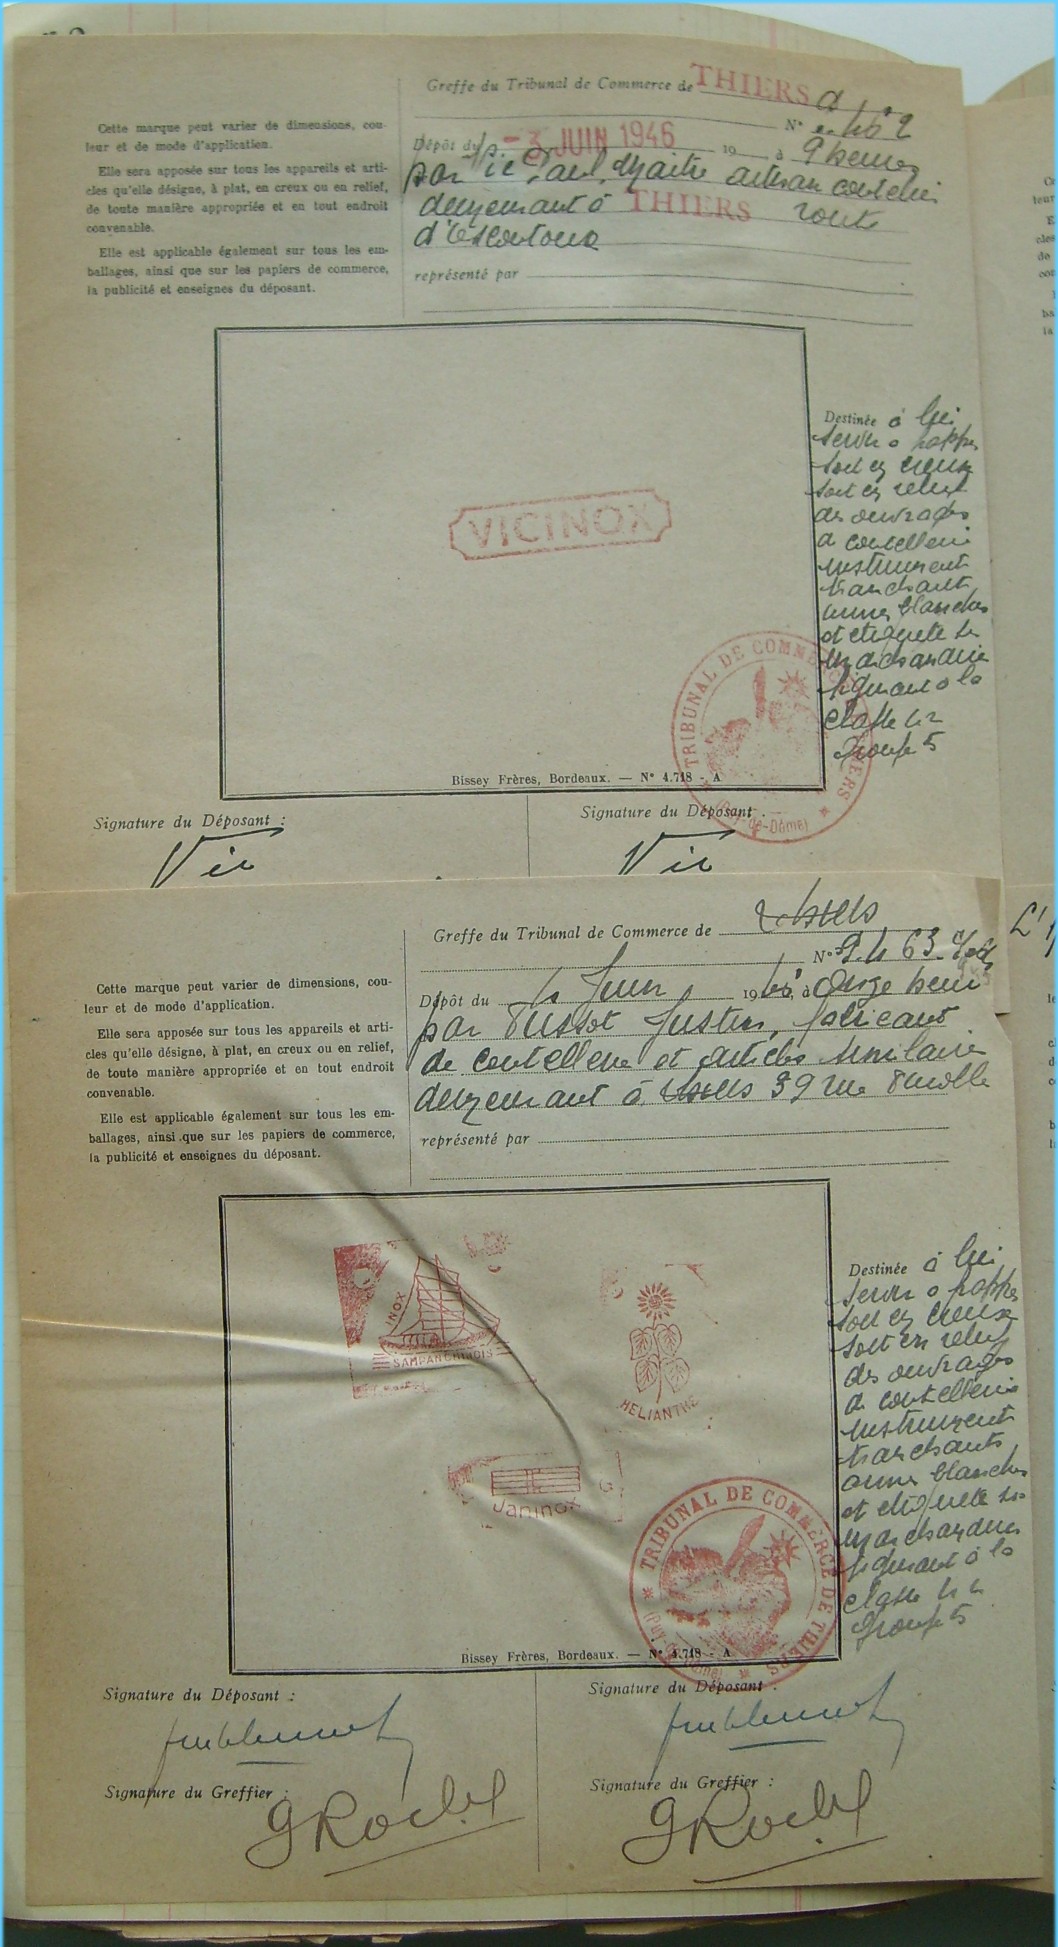 Greffe du Tribunal de Commerce de THIERS
N°
Cette marque peut varier de dimensions, cou-
leur et de mode d'application.
Elle sera apposée sur tous les appareils et arti-
cles qu'elle désigne, à plat, en creux ou en relief,
de toute manière appropriée et en tout endroit
convenable.
Elle est applicable également sur tous les em-
ballages, ainsi que sur les papiers de commerce,
la publicité et enseignes du déposant.
Dépôt du - 3 JUIN 1946 19 à 9 heures
par Vic Paul, Maitre artisan coutelier
demeurant à THIERS route
d'Escoutoux
représenté par
VICINOX
Destinée à lui
servir à frapper
soit en creux
soit en relief
des ouvrages
de coutellerie
instrument
tranchants
armes blanches
et étiqueté les
marchandises
figurant à la
classe
groupe 5
TRIBUNAL DE COMMERCE DE THIERS
(Puy-de-Dôme)
Bissey Frères, Bordeaux. — N° 4.718 - A
Signature du Déposant :
Signature du Déposant :
Vic
Vic
Greffe du Tribunal de Commerce de Thiers
N°
Cette marque peut varier de dimensions, cou-
leur et de mode d'application.
Elle sera apposée sur tous les appareils et arti-
cles qu'elle désigne, à plat, en creux ou en relief,
de toute manière appropriée et en tout endroit
convenable.
Elle est applicable également sur tous les em-
ballages, ainsi que sur les papiers de commerce,
la publicité et enseignes du déposant.
Dépôt du Juin 19 à onze heures
par Justin, fabricant
de coutellerie et articles similaires
demeurant à Thiers 39 rue
représenté par
INOX
SAMPAN CHINOIS
HELIANTHE
Janinox
Destinée à lui
servir à frapper
soit en creux
soit en relief
des ouvrages
de coutellerie
instrument
tranchants
armes blanches
et étiqueté les
marchandises
figurant à la
classe
groupe 5
TRIBUNAL DE COMMERCE DE THIERS
(Puy-de-Dôme)
Bissey Frères, Bordeaux. — N° 4.718 - A
Signature du Déposant :
Signature du Déposant :
Signature du Greffier :
Signature du Greffier :